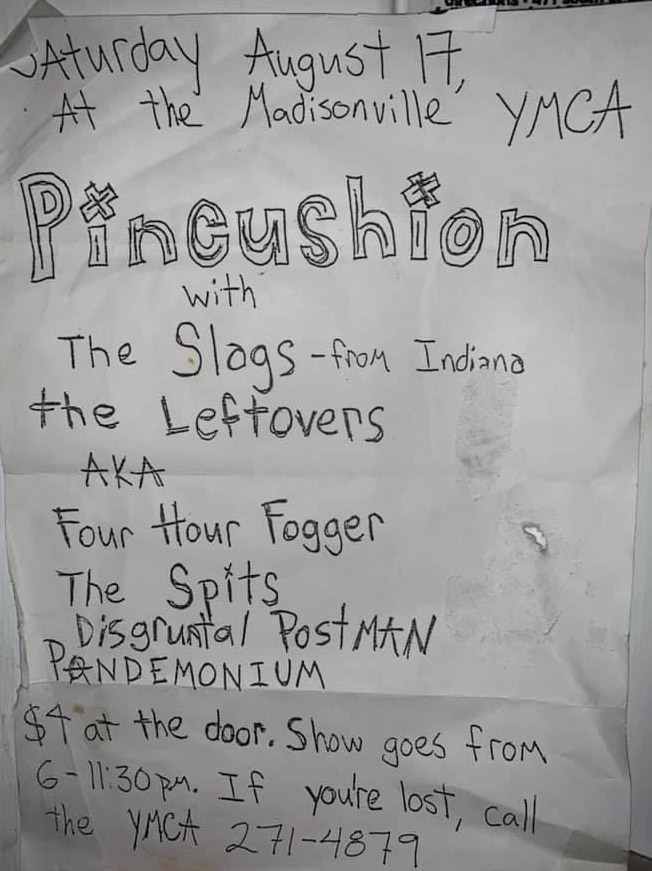 SAturday August 17,
At the Madisonville YMCA
Pincushion
with
The Slags - from Indiana
the Leftovers
AKA
Four Hour Fogger
The Spits
Disgruntal PostMAN
PANDEMONIUM
$4 at the door. Show goes from
6-11:30pm. If you're lost, call
the YMCA 271-4879